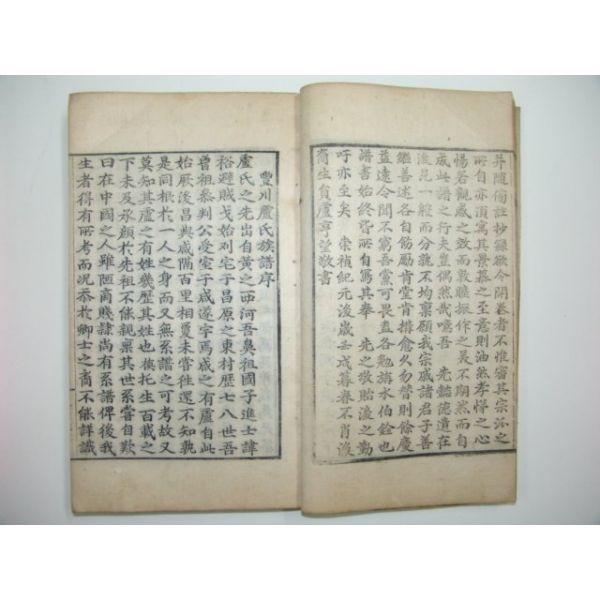 并隨傷註抄錄欲令開卷者不惟審其宗派之
所自亦須寓其景慕之至意則油然孝悌之心
惕若觀感之效而敦睦振作之美不期然而自
成此譜之行夫豈偶然哉噫吾 先懿德遺在
後昆一般而分孰不均稟願我宗戚諸君子善
繼善述各自飭勵肯堂肯構愈久勿替則餘慶
益遠今聞不罵吾黨可畏盍各勉旃水伯銓也
譜書始終皆所自寫其奉 先之敬貽後之勤
吁亦至矣 崇禎紀元後歲壬戌暮春不肖後
裔生員盧亨望敬書
豐川盧氏族譜序
盧氏之先出自黃之西河吾鼻祖國子進士諱
裕避賊戈始列宅于昌原之東村歷七八世吾
曾祖參判公受室于咸遂宇焉咸之有盧自此
始厥後昌與咸隔百里相貫未嘗往還不知孰
是同根於一人之身而又無系譜之可考故又
莫知其盧之有姓幾歷其姓也模托生百載之
下未及承顏於先祖不能親稟其世系嘗自歎
曰在中國之人雖陋商賤隷尚有系譜俾後我
生者得有所考而況忝於卿士之裔不能詳識